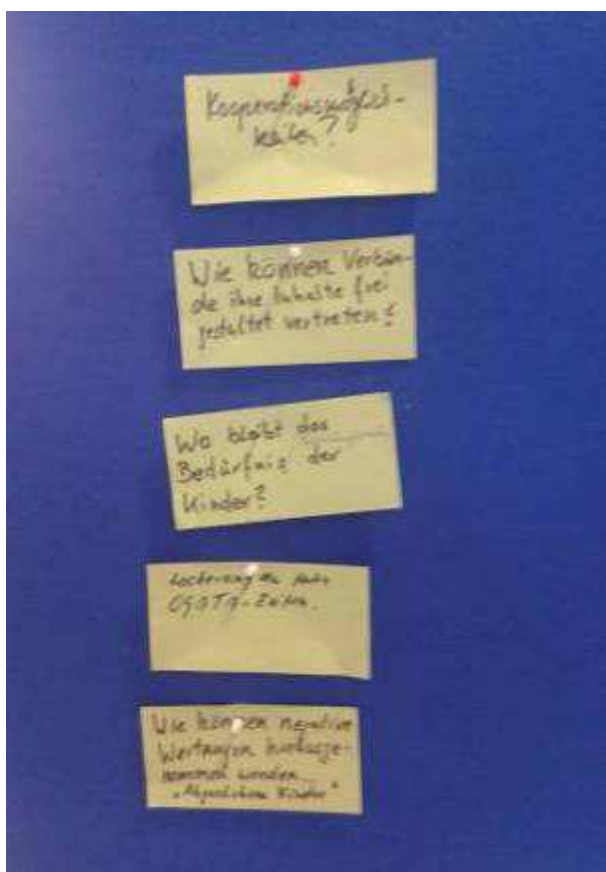 Kooperationsmöglich-
keiten?
Wie können Verbän-
de ihre Inhalte frei
gestaltet vertreten?
Wo bleibt das
Bedürfnis der
Kinder?
Lockerung der
OGATA-Zeiten
Wie können negative
Wertungen herausge-
nommen werden
Kinder"